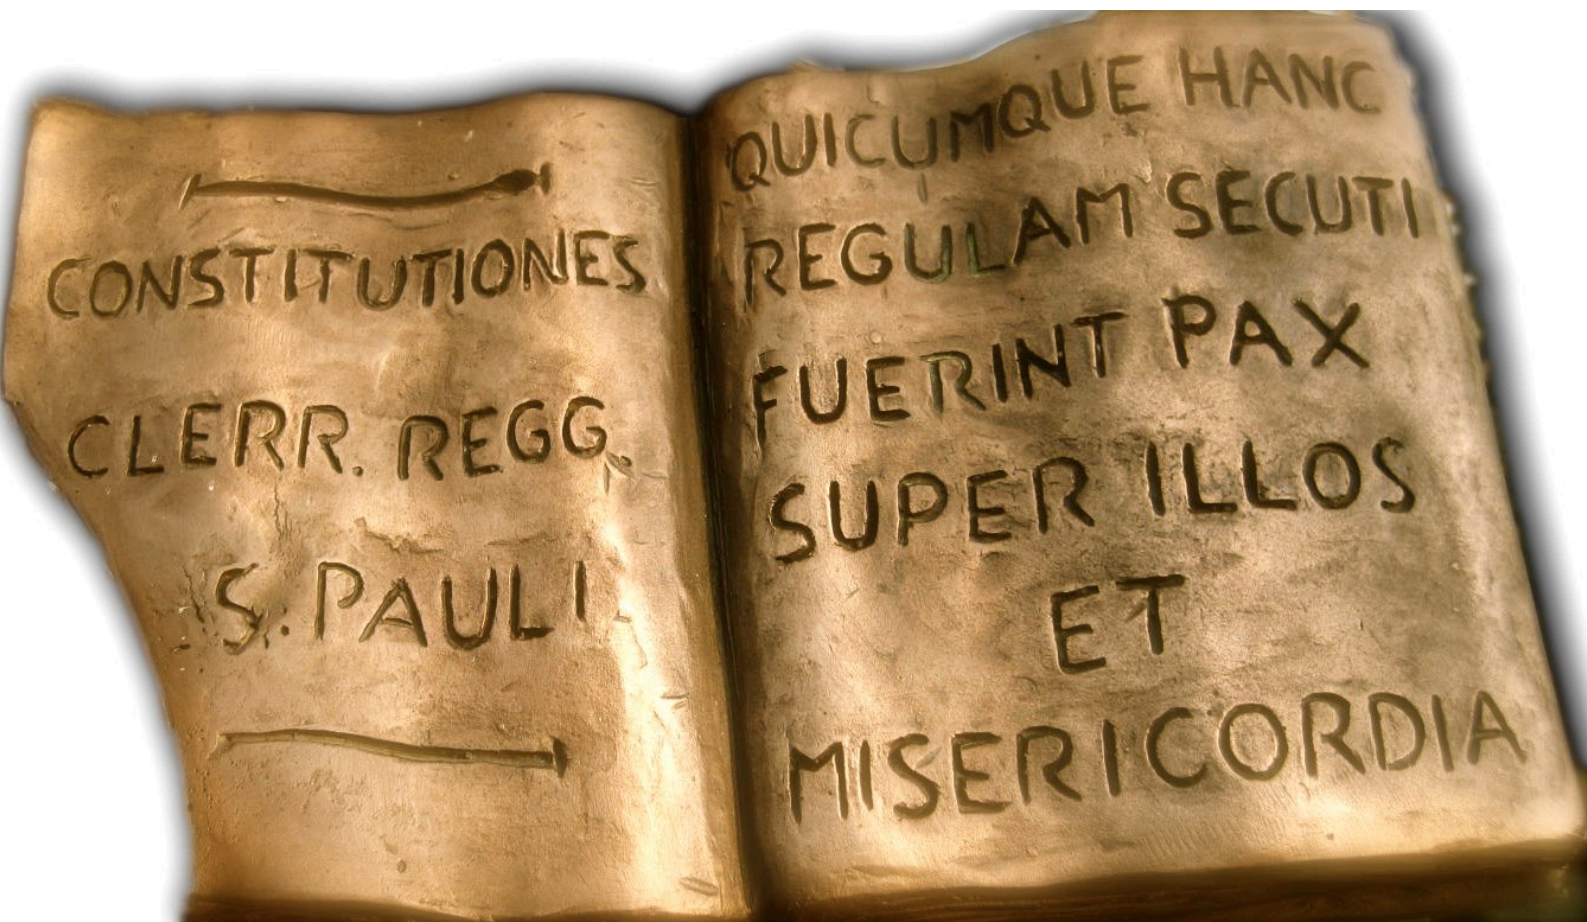 CONSTITUTIONES
CLERR. REGG.
S. PAULI.
QUICUMQUE HANC
REGULAM SECUTI
FUERINT PAX
SUPER ILLOS
ET
MISERICORDIA